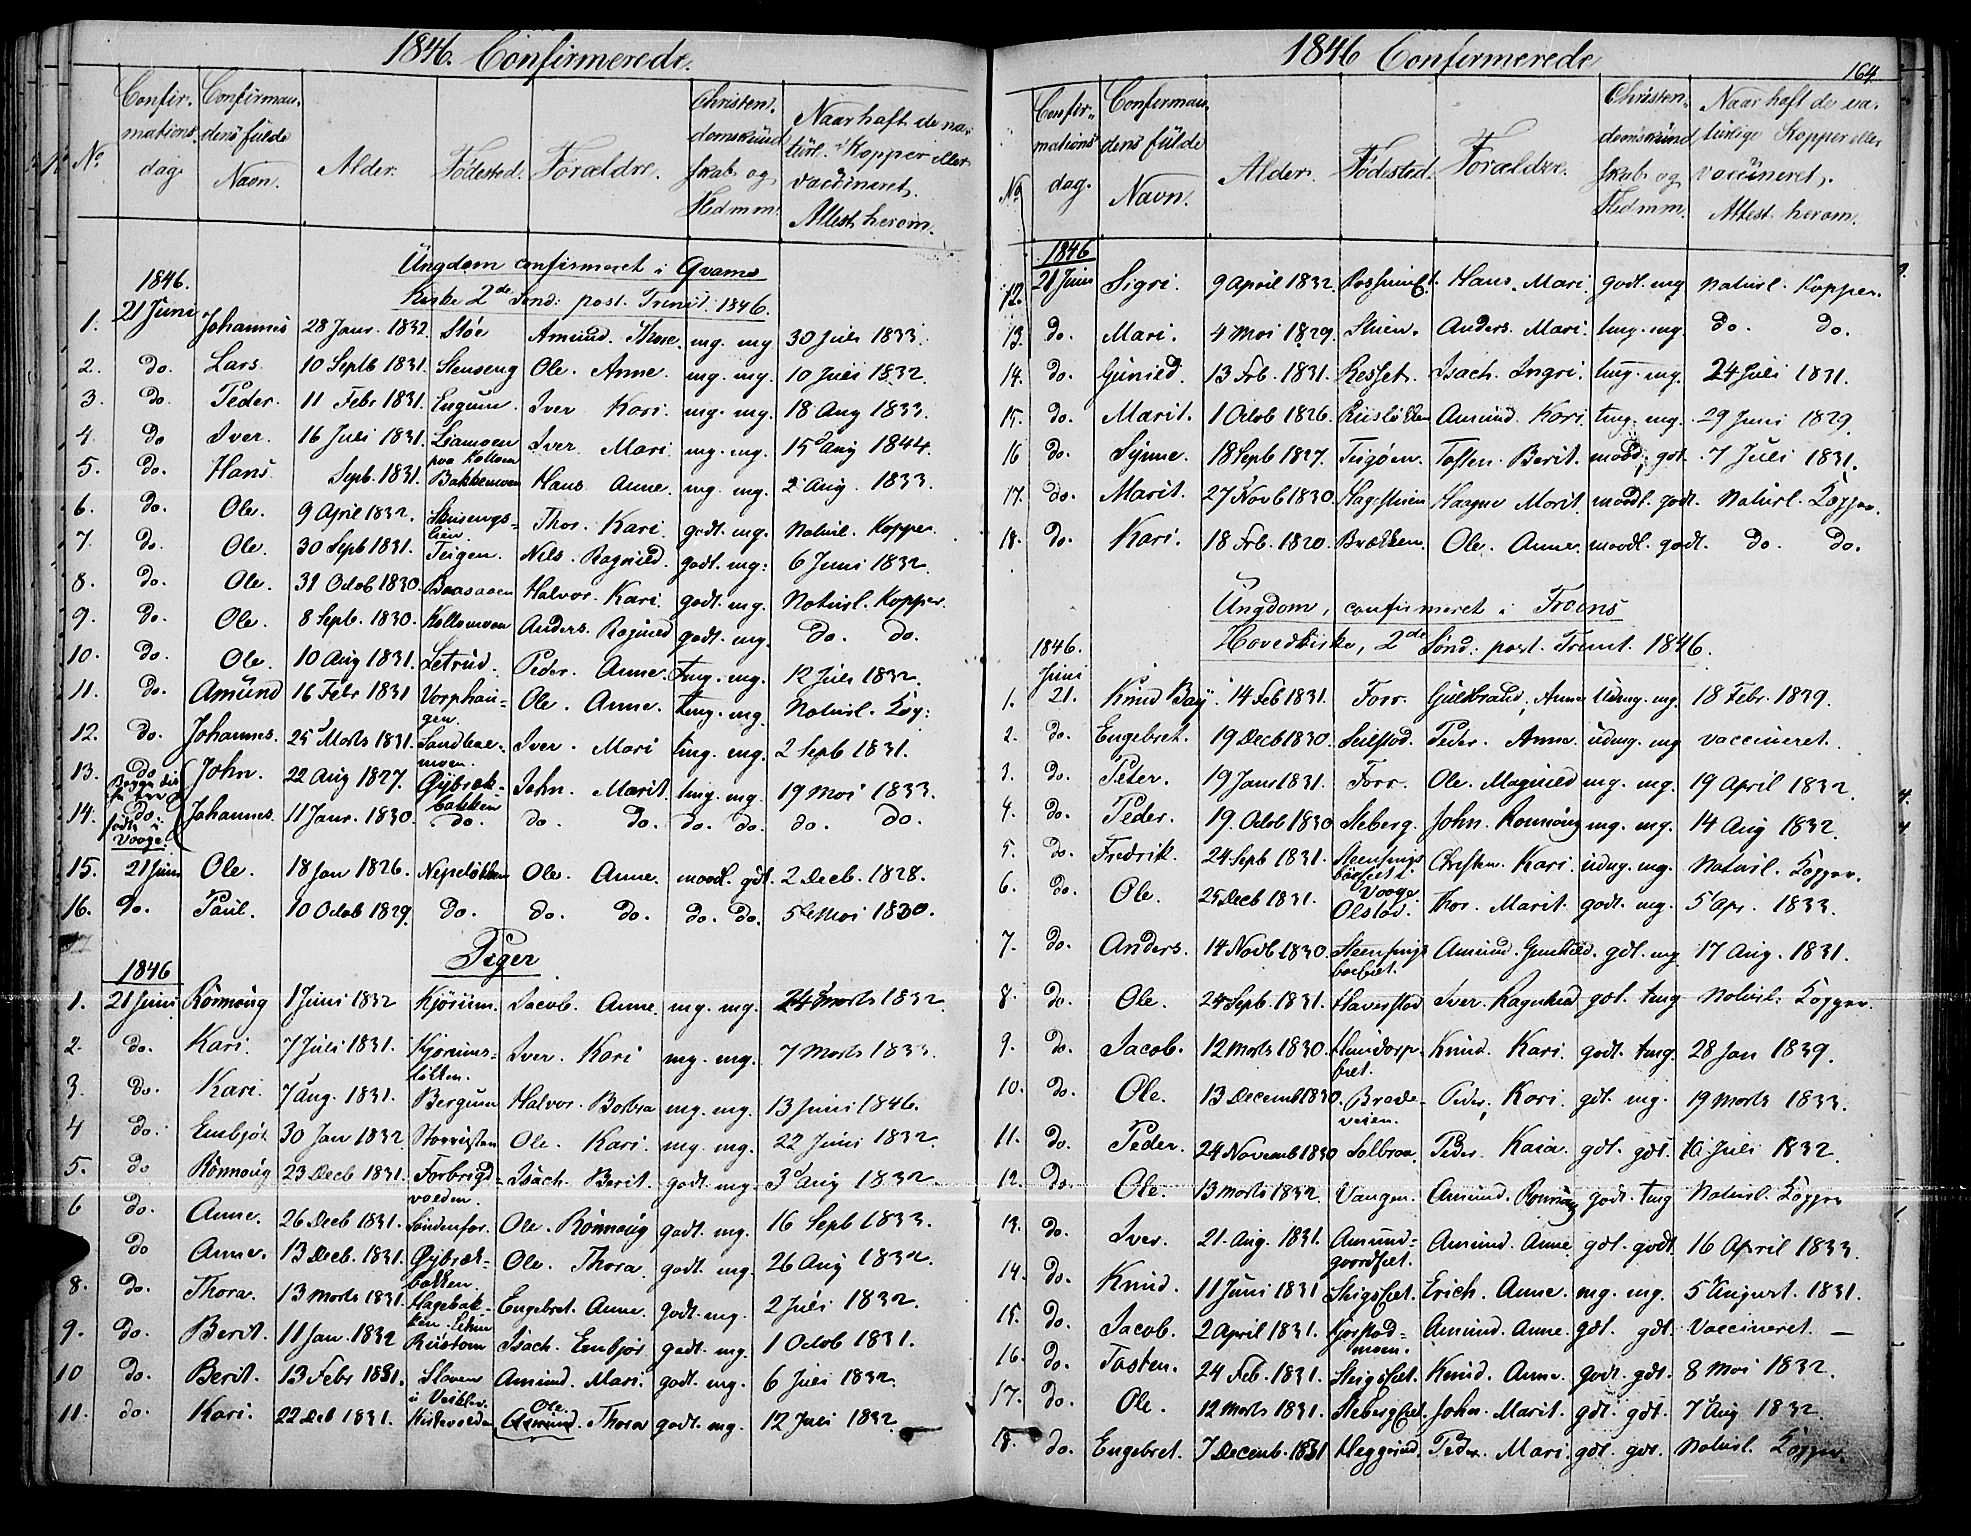 1846. Confirmerede.
No. Confir-mations dag. Confirman-dens fulde Navn. Alder. Fødested. Forældre. Christen-domskund-skab og Hdmm. Naar haft de na-türl. Kopper eller vaccineret. Attest herom.
Ungdom confirmeret i Qvams
Kirke 2de Sønd: post. Trinit: 1846.
1846.
1. 21 Juni Johannes 28 Janr. 1832 Støe Amund. Thore. mg. mg 30 Juli 1833.
2. do. Lars. 10 Septb 1831. Stenseng Ole. Anne. mg. mg. 10 Juli 1832.
3. do. Peder. 11 Febr 1831. Engum. Iver Kari. mg. mg. 18 Aug 1833.
4. do Iver. 16 Juli 1831. Liamoen Iver. Mari mg. mg. 15 Aug 1844.
5. do. Hans Septb. 1831. Bakkemoen Hans Anne. mg. mg. 2 Aug. 1833.
6. do. Ole. 9 April 1832. Stensengs-lien. Thor. Kari. godt. mg. Naturl. Kopper.
7. do. Ole. 30 Sept 1831. Teigen. Nils. Ragnild. godt. mg: 6 Juni 1832.
8. do. Ole. 31 Octob 1830. Baasaaen Halvor. Kari. godt. mg. Naturl. Kopper.
9. do. Ole. 8 Septb. 1830. Kollomoen Anders. Ragnild godt. mg. do. do.
10. do. Ole. 10 Aug 1831. Letrud. Peder. Anne. tmg. mg. 12 Juli 1832.
11. do. Amund 16 Febr 1831 Vorphau-gen. Ole. Anne. tmg. mg. Naturl. Kop:
12. do. Johannes. 25 Marts 1831. Sandbue-moen. Iver. Mari tmg. mg. 2 Septb 1831.
13. do John. 22 Aug 1827. Øybræk-bakken John. Marit. tmg. mg. 19 Mai 1833.
Begge dis-se ere
14. do. Johannes. 11 Janr. 1830. do. do. do. do. do. do. do.
fødte i Vaage.
15. 21 Juni Ole. 18 Jan 1826. Nepeløkken Ole. Anne. moodl. gdt. 2 Decb. 1828.
16. do. Paul. 10 Octob 1829. do. do. do. do. do. 5 Mai 1830.
Piger
1846
1. 21 Juni Rønnaug 1 Juni 1832 Kjørum. Jacob. Anne. mg. mg. 24 Marts 1832.
2. do. Kari. 7 Juli 1831. Kjørums-løkken. Iver. Kari mg. mg. 7 Marts 1833.
3. do. Kari. 7 Aug. 1831. Bergum Halvor. Barbra mg. mg. 13 Juni 1846.
4 do. Embjør 30 Jan 1832 Ole. Kari. mg. mg. 22 Juni 1832.
5. do Rønnaug 23 Decb 1831. Forbrigd-volden. Isach. Berit. godt. mg. 3 Aug 1832.
6 do. Anne. 26 Decb 1831. Søndenfor. Ole. Rønnaug godt. mg. 16 Septb 1833.
do Anne. 13 Decb. 1831. Øybræk-bakken Ole. Thora. godt. mg. 26 Aug 1832.
8. do. Thora. 13 Marts 1831. Hagebak-ken. Engebret. Anne. godt. mg. 2 Juli 1832.
9. do. Berit. 11 Jan. 1832 Rustom Isach. Embjør godt. mg. 1 Octob 1831.
10 do. Berit. 13 Febr 1831. Sloven Amund. Mari. godt. mg. 6 Juli 1832.
11. do. Kari. 22 Dcb 1831. Kirkevolden Ole. Amund. Thora godt. mg. 12 Juli 1832.
1846 Confirmerede
164.
No. Confir-mations dag. Confirman-dens fulde Navn. Alder. Fødested. Forældre. Christen-domskund-skab og Hdmm. Naar haft de na-turlige Kopper eller vaccineret. Attest herom.
1846
12. 21 Juni Sigri. 9 April 1832. Hans. Mari. godt. mg Naturl. Kopper.
13. do. Mari. 4 Mai 1829. Stuen. Anders. Mari. tmg. mg. do. do.
14. do. Gunild. 13 Frb. 1831. Resset. Isach. Ingri. tmg. mg. 24 Juli 1831.
15. do. Marit. 1 Octob 1826. Amund. Kari. tmg. mg. 29 Juni 1829.
16 do. Synne. 18 Septb 1827. Tosten. Berit. moodl. gdt. 7 Juli 1831.
17. do. Marit. 27 Novb 1830. Haagne Marit moodl. godt. Naturl. Kopper.
18. do. Kari. 18 Frb. 1820. Brækken. Ole. Anne. moodl. godt. do. do.
Ungdom, confirmeret i Froens
Hovedkirke, 2de Sønd: post. Trinit. 1846.
1846.
Juni
1. 21. Knud Bay. 14 Feb 1831. Forr. Guldbrand, Anne Udmg. mg 18 Febr. 1839.
2. do. Engebret. 19 Decb 1830. Seilstad. Peder. Anne. udmg. mg vaccineret.
3. do. Peter. 19 Janr 1831. Forr. Ole. Magnild mg. mg. 19 April 1832.
4. do. Peder. 19. Octob 1830 Steberg. John. Rønnaug mg. mg. 14 Aug 1832.
5. do. Fredrik. 24 Septb 1831. Christen. Kari. udmg. mg. Naturl. Kopper.
6. do. Ole. 25 Decb 1831. Vaage Olstad. Thor. Marit. godt. mg. 5 Apr. 1833.
7. do. Anders. 14 Novb 1830. Amund. Gunhild. gdt. mg 17 Aug. 1831.
8. do. Ole. 24 Septb. 1831. Haverstad Iver. Ragnhild gdt. tmg Naturl. Kopper.
9. do. Jacob. 12 Marts 1830. Hundorp-eiet. Knud. Kari. godt. tmg. 28 Jan 1839.
10. do. Ole. 13 December 1830. Brede-veien. Peder, Kari. gdt. mg. 19 Marts 1833.
11. do. Peder. 24 Novemb 1830 Solbraa. Peder. Kari. gdt. gdt. 10 Juli 1832.
12. do. Ole. 13 Marts 1832. Vangen. Amund. Rønnaug godt. tmg Naturl. Kopper
13. do. Iver. 21. Aug. 1831. Amund-gaardseiet. Amund. Anne gdt. godt. 16 April 1833.
14. do. Knud. 11 Juni 1831 Stigseiet. Erich. Anne. mg. mg. 5 August. 1831.
15. do. Jacob. 2 April 1831. Kjorstad-moen. Amund. Anne. gdt. gdt. Vaccineret. —
16. do. Tosten. 24 Feb. 1831. Stigseiet. Knud. Anne. godt. gdt. 8 Mai 1832.
17. do. Ole. 12 Marts 1831. Stebergeiet. John. Marit. gdt. gdt. 7 Aug 1832.
18. do. Engebret. 7 Decemb. 1831 Heggerud. Peder. Mari. gdt. gdt. Naturl. Kopper.